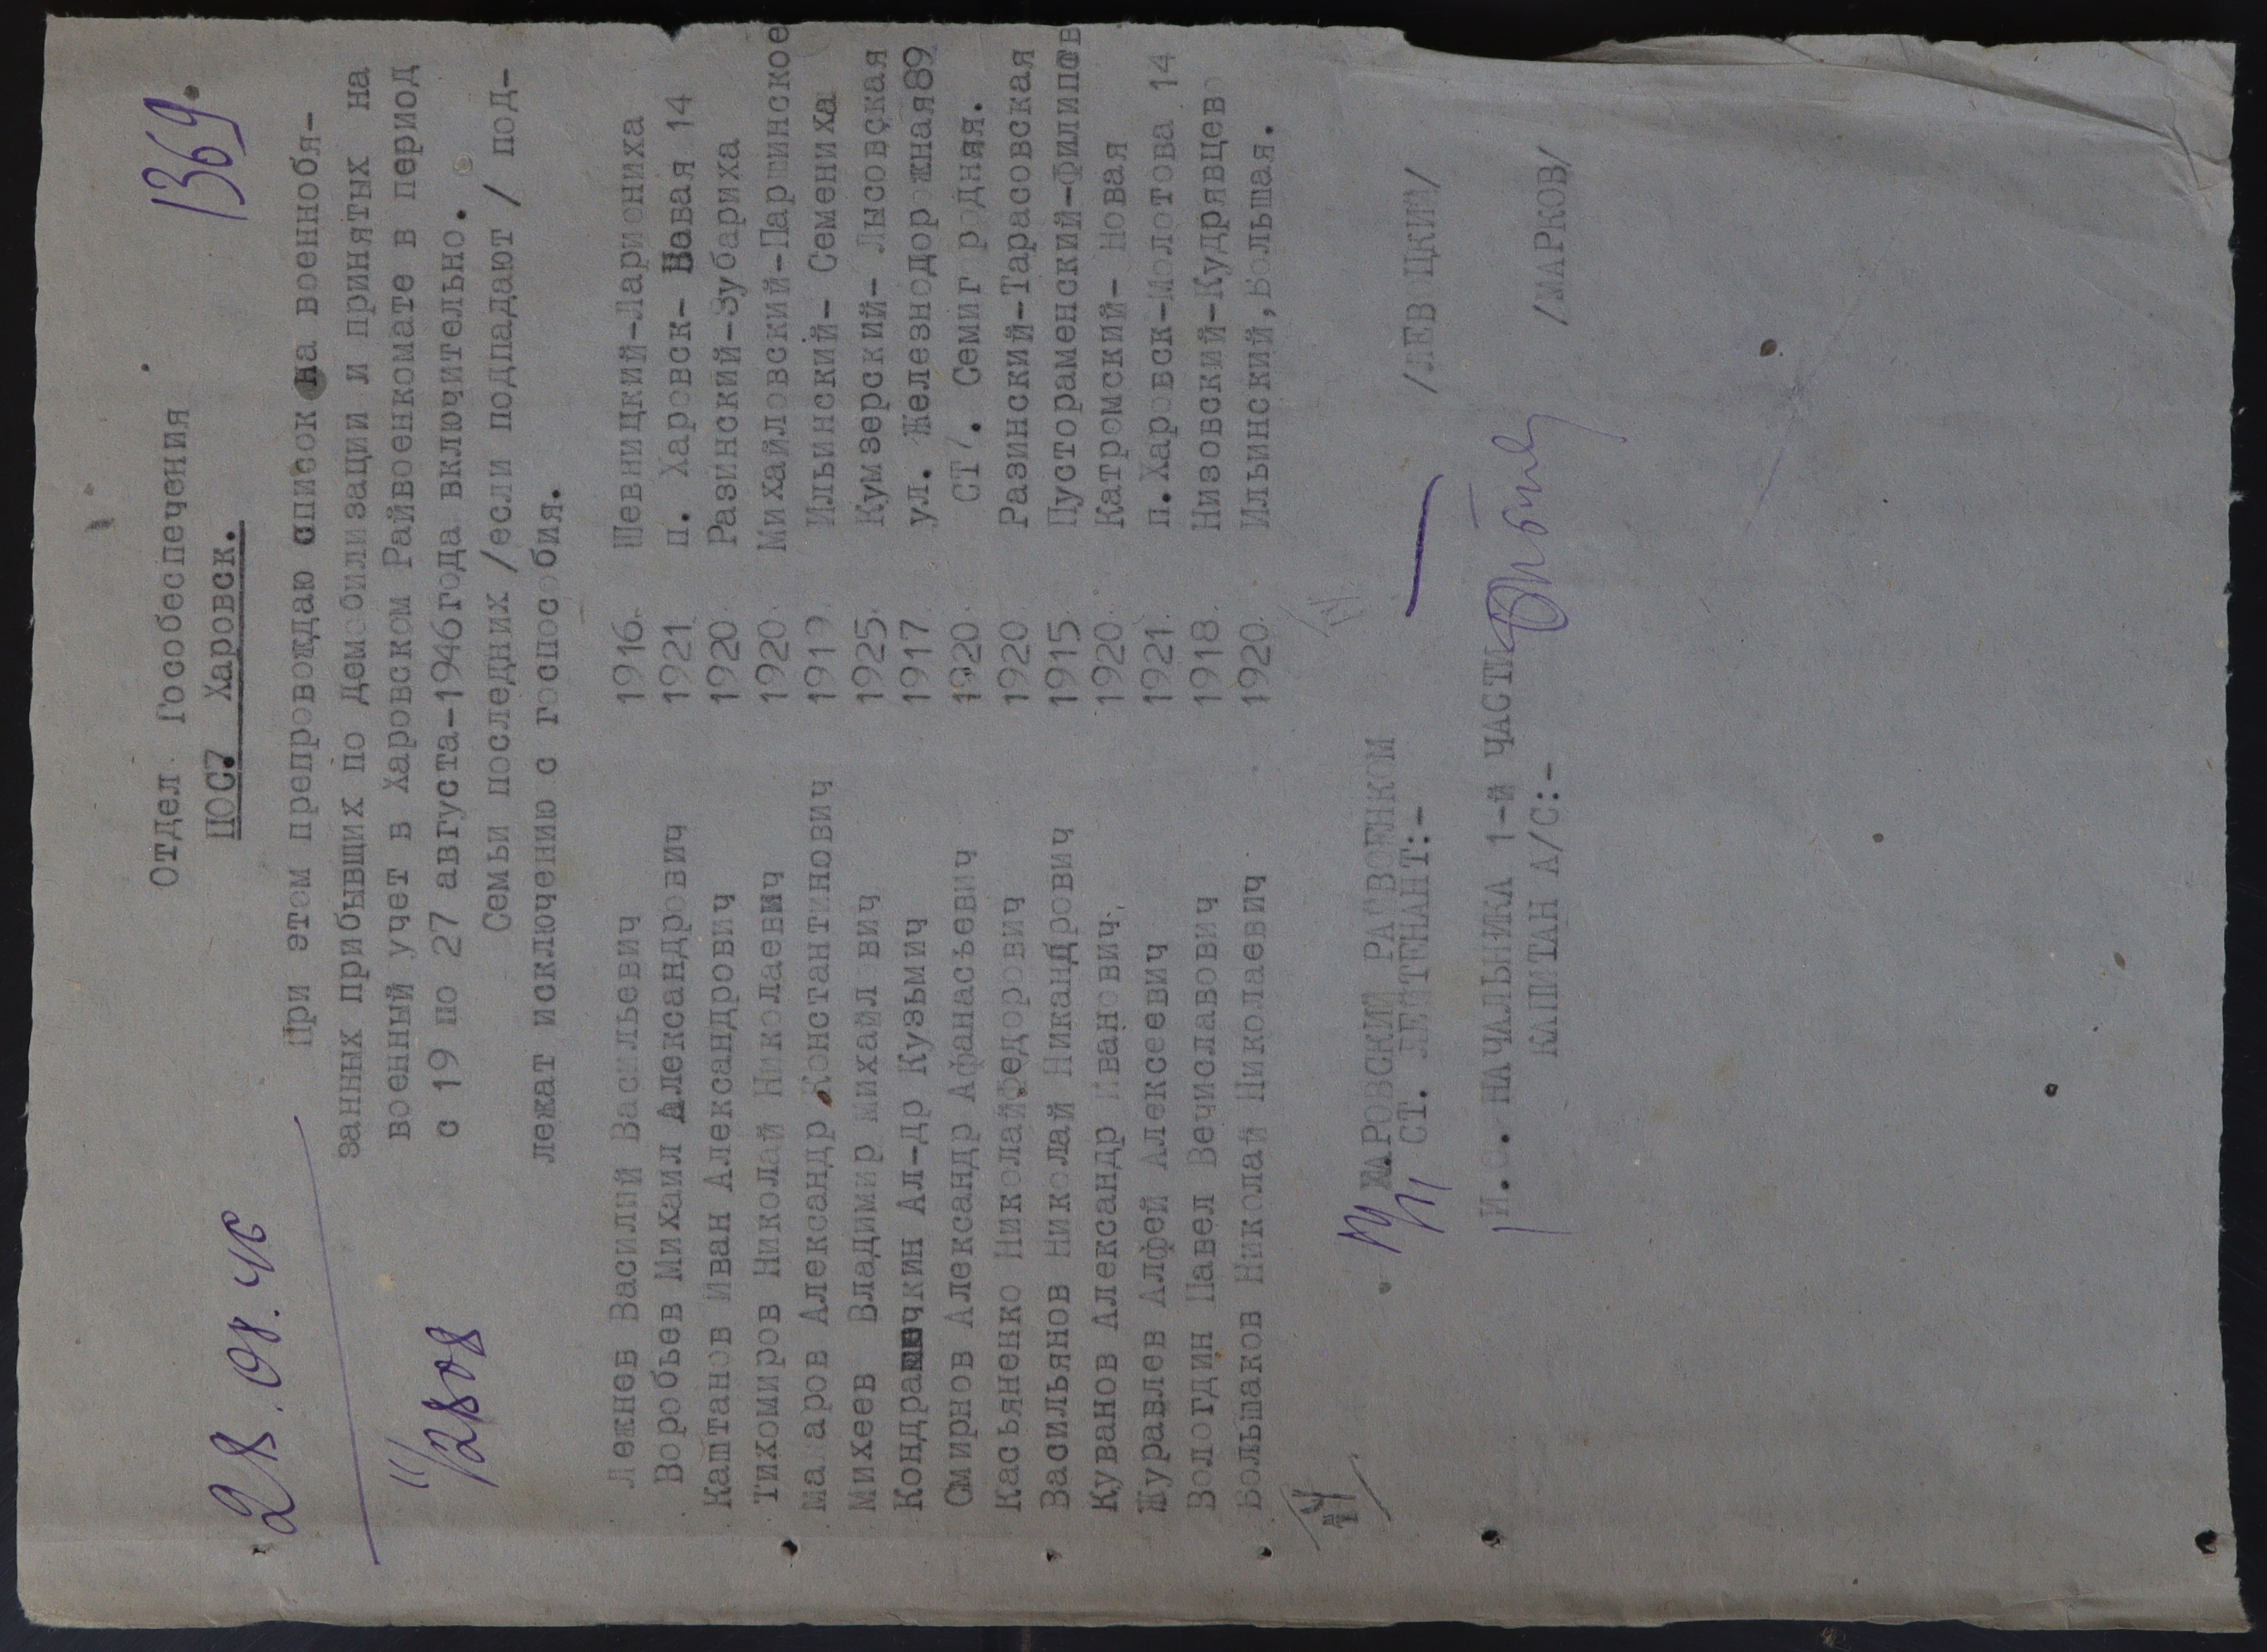 1369.
28.08.46
11/2808
Отдел Гособеспечения
ПОС7 Харовск.
При этом препровождаю список на военнобя-
занных прибывших по демобилизации и принятых на
военный учет в Харовском Райвоенкомате в период
с 19 по 27 августа-1946года включительно.
Семьи последних /если подпадают / под-
лежат исключению с госпособия.
Лежнев Василий Васильевич 1916. Шевницкий-Лариониха
Воробьев Михаил Александрович 1921 п. Харовск- Новая 14
Каштанов Иван Александрович 1920 Разинский-Зубариха
Тихомиров Николай Николаевич 1920 Михайловский-Паршинское
Макаров Александр Константинович 1919 Ильинский- Семениха
Михеев Владимир Михайлович 1925 Кумзерский- Лысовская
Кондрашечкин Ал-др Кузьмич 1917 ул. Железнодорожная89
Смирнов Александр Афанасьевич 1920 СТ7. Семигородняя.
Касьяненко НиколайФедорович 1920 Разинский-Тарасовская
Васильянов Николай Никандрович 1915 Пустораменский-Филипов
Куванов Александр Иванович. 1920 Катромский- Новая
Журавлев Алфей Алексеевич 1921 п.Харовск-Молотова 14
Вологдин Павел Вечиславович 1918 Низовский-Кудрявцево
Большаков Николай Николаевич 1920 Ильинский,Большая.
ХАРОВСКИЙ РАЙВОЕНКОМ
СТ. ЛЕЙТЕНАНТ:- /ЛЕВОЦКИЙ/
И.О. НАЧАЛЬНИКА 1-й ЧАСТИ
КАПИТАН А/С:- /МАРКОВ/